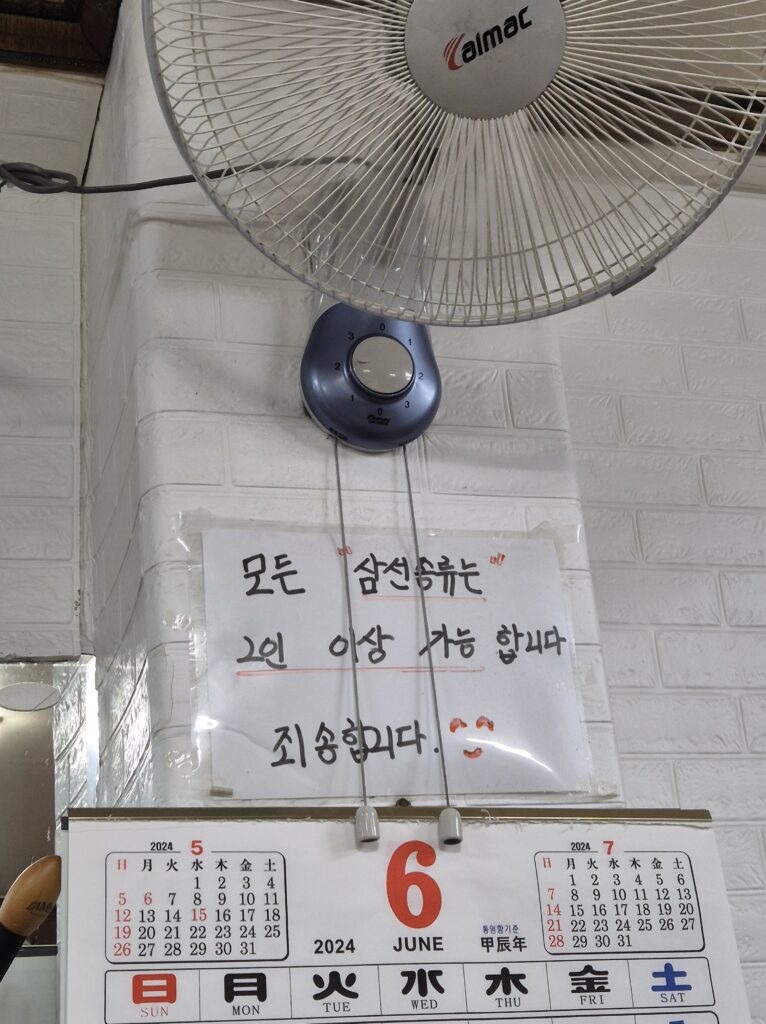 almac
0
3 1
2 2
1 3
0
모든 "삼선종류는"
2인 이상 가능합니다
죄송합니다.
2024 5
日 月 火 水 木 金 土
1 2 3 4
5 6 7 8 9 10 11
12 13 14 15 16 17 18
19 20 21 22 23 24 25
26 27 28 29 30 31
6
2024 JUNE
통영항기준
甲辰年
2024 7
日 月 火 水 木 金 土
1 2 3 4 5 6
7 8 9 10 11 12 13
14 15 16 17 18 19 20
21 22 23 24 25 26 27
28 29 30 31
日 月 火 水 木 金 土
SUN MON TUE WED THU FRI SAT